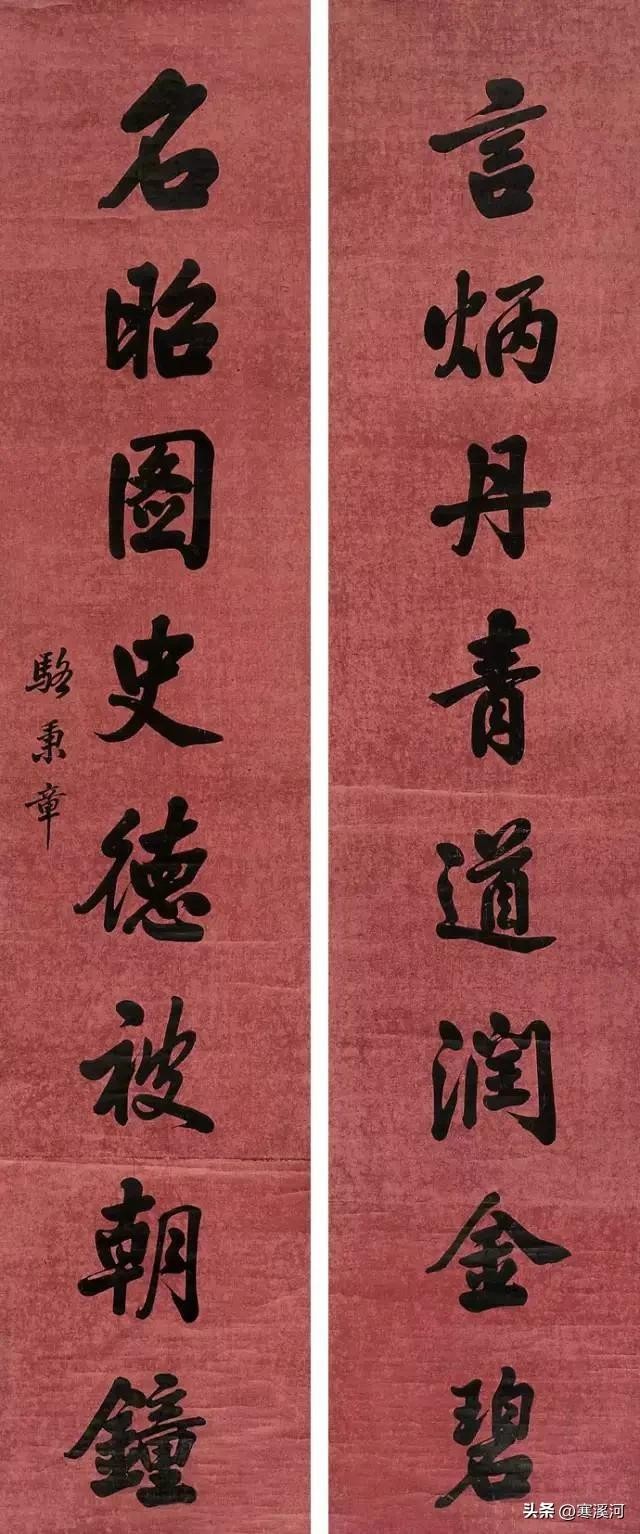 言炳丹青道润金碧
名昭圖史德被朝鐘
駱秉章
头条 @寒溪河